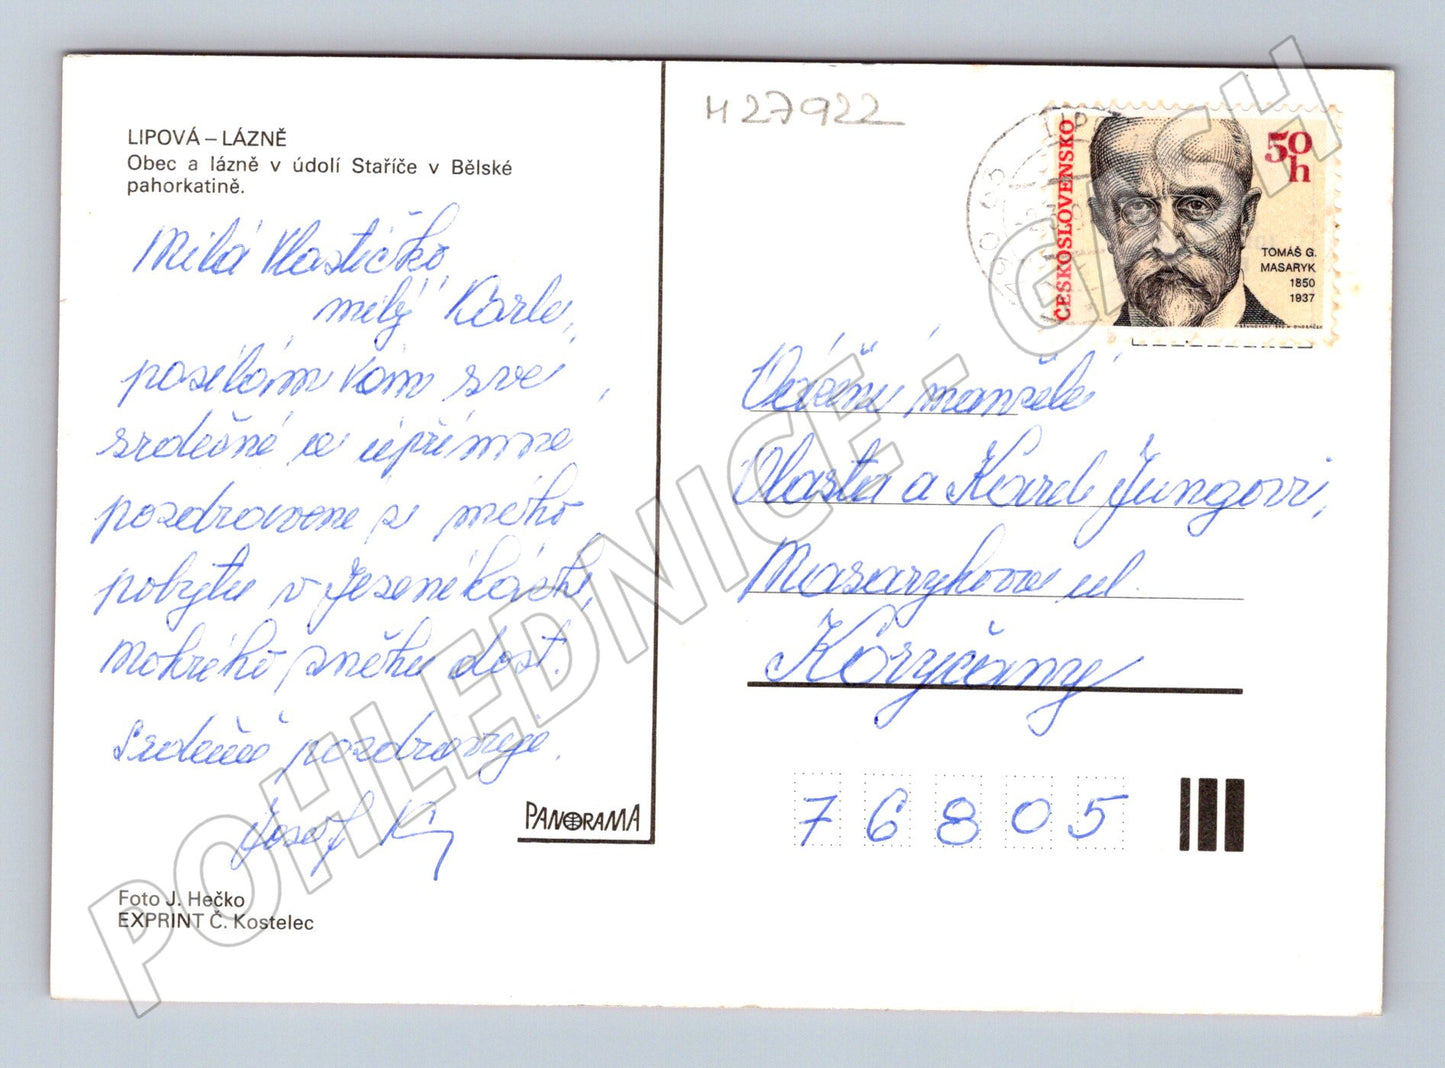 LIPOVÁ – LÁZNĚ
Obec a lázně v údolí Staříče v Bělské
pahorkatině.
Milá Vlastičko,
milý Karle,
posílám Vám své
srdečné a upřímné
pozdravení z mého
pobytu v Jeseníkách,
mokrého sněhu dost.
Srdečně pozdravuje
Josef
PANORAMA
Foto J. Hečko
EXPRINT Č. Kostelec
H 27922
ČESKOSLOVENSKO
50
h
TOMÁŠ G.
MASARYK
1850
1937
Vážení manželé
Vlasta a Karel Jungovi,
Masarykova ul.
Koryčany
76805
POHLEDNICE - GASH